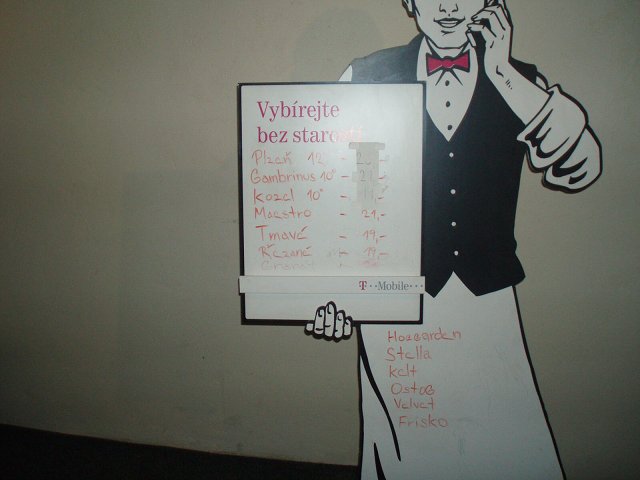 Vybírejte
bez starostí
Plzeň 12° -
Gambrinus 10° - 21,-
Kozel 10° -
Maestro - 21,-
Tmavé - 19,-
Řezané - 19,-
T··Mobile···
Hoegarden
Stella
Kelt
Ostog
Velvet
Frisko